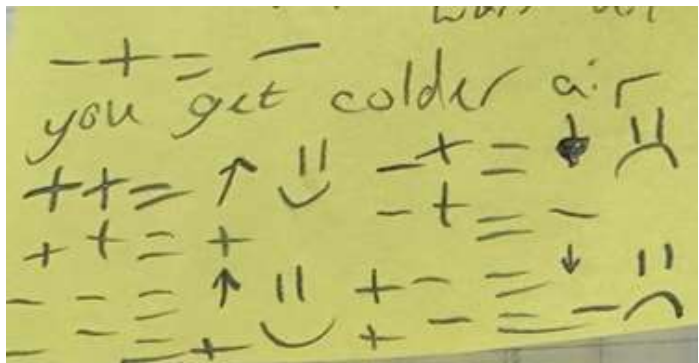 - + = -
you get colder air
+ + = ↑ :) - + = ↓ :(
+ + = + - + = -
- - = ↑ :) + - = ↓ :(
- - = + + - = -